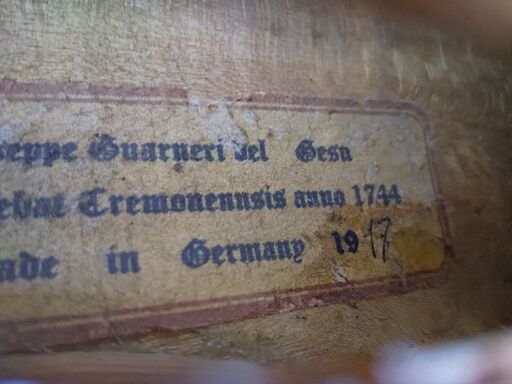 seppe Guarneri del Gesu
ebat Cremonennsis anno 1744
ade in Germany 1917